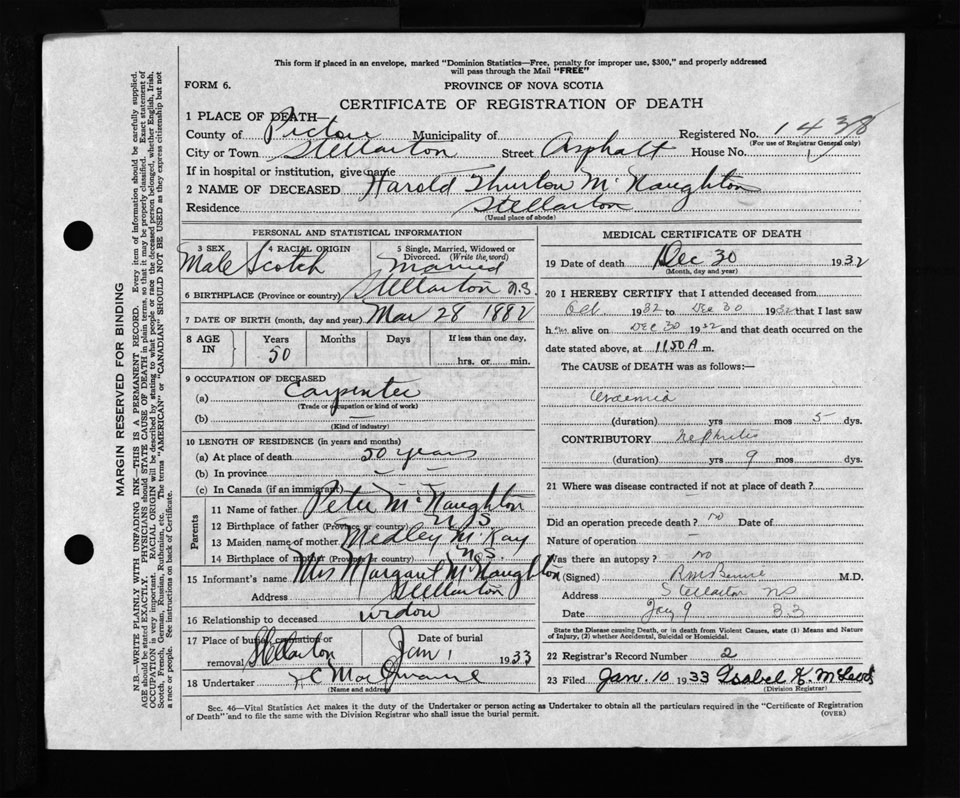 This form if placed in an envelope, marked "Dominion Statistics—Free, penalty for improper use, $300," and properly addressed
will pass through the Mail "FREE"
FORM 6.
PROVINCE OF NOVA SCOTIA
CERTIFICATE OF REGISTRATION OF DEATH
1 PLACE OF DEATH—
County of Pictou Municipality of Registered No. 1438
(For use of Registrar General only)
City or Town Stellarton Street Asphalt House No.
If in hospital or institution, give name
2 NAME OF DECEASED Harold Thurlow McNaughton
Residence Stellarton
(Usual place of abode)
PERSONAL AND STATISTICAL INFORMATION
3 SEX 4 RACIAL ORIGIN 5 Single, Married, Widowed or Divorced. (Write the word)
Male Scotch Married
6 BIRTHPLACE (Province or country) Stellarton N.S.
7 DATE OF BIRTH (month, day and year) Mar 28 1882
8 AGE IN Years Months Days If less than one day,
50 hrs. or min.
9 OCCUPATION OF DECEASED
(a) Carpenter
(Trade or occupation or kind of work)
(b) —
(Kind of industry)
10 LENGTH OF RESIDENCE (in years and months)
(a) At place of death 50 years
(b) In province — —
(c) In Canada (if an immigrant) — —
Parents
11 Name of father Peter McNaughton
12 Birthplace of father (Province or country) N S
13 Maiden name of mother Medley McKay
14 Birthplace of mother (Province or country) N.S
15 Informant's name Mrs Margaret McNaughton
Address Stellarton
16 Relationship to deceased widow
17 Place of burial, cremation or removal Stellarton Date of burial Jan 1 1933
18 Undertaker
(Name and address)
MEDICAL CERTIFICATE OF DEATH
19 Date of death Dec 30 1932
(Month, day and year)
20 I HEREBY CERTIFY that I attended deceased from
1932 to Dec 30 1932 that I last saw
h im alive on DEC 30 1932 and that death occurred on the
date stated above, at 11.50 A m.
The CAUSE of DEATH was as follows:—
Uraemia
(duration) yrs mos 5 dys.
CONTRIBUTORY Nephritis
(duration) yrs 9 mos dys.
21 Where was disease contracted if not at place of death?
—
Did an operation precede death? no Date of
Nature of operation —
Was there an autopsy? no
(Signed) M.D.
Address Stellarton NS
Date Jany 9 33
State the Disease causing Death, or in death from Violent Causes, state (1) Means and Nature
of Injury, (2) whether Accidental, Suicidal or Homicidal.
22 Registrar's Record Number 2
23 Filed Jan. 10 1933 Isobel K. McLeod
(Division Registrar)
Sec. 46—Vital Statistics Act makes it the duty of the Undertaker or person acting as Undertaker to obtain all the particulars required in the "Certificate of Registration
of Death" and to file the same with the Division Registrar who shall issue the burial permit.
(OVER)
MARGIN RESERVED FOR BINDING
N.B.—WRITE PLAINLY WITH UNFADING INK—THIS IS A PERMANENT RECORD. Every item of information should be carefully supplied.
AGE should be stated EXACTLY. PHYSICIANS should STATE CAUSE OF DEATH in plain terms, so that it may be properly classified. Exact statement of
OCCUPATION is very important. RACIAL ORIGIN will be described by stating to what people or race the deceased person belonged, whether English, Irish,
Scotch, French, German, Russian, Ruthenian, etc. The terms "AMERICAN" or "CANADIAN" SHOULD NOT BE USED as they express citizenship but not
a race or people. See instructions on back of Certificate.